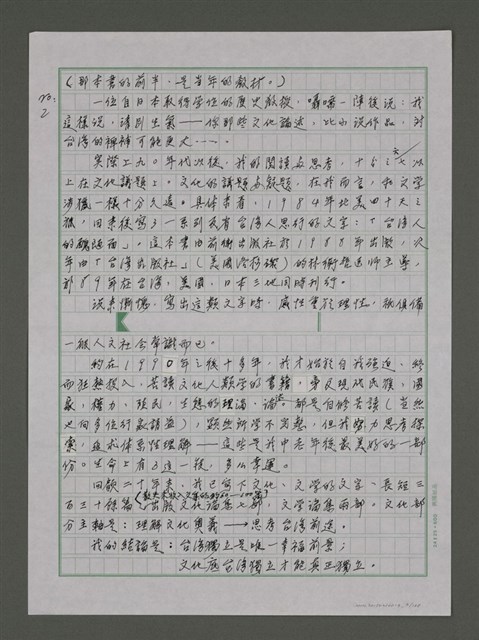 no. 2
(那本書的前半,是當年的教材。)
一位自日本取得學位的歷史教授,囁嚅一陣後說:我
這樣說,請別生氣——你那些文化論述,比小說作品,對
台灣的裨補可能更大……。
實際上九〇年代以後,我的閱讀与思考,十分之七以
上在文化議題上。文化的議題与疑題,在我而言,和文學
涉獵一樣十分久遠。具体來看,1984年北美四十天之
旅,回來後寫了一系列民省台灣人思行的文字:「台灣人
的醜陋面」。這本書由前衛出版社於1988年出版,次
年由「台灣出版社」(美國洛杉磯)的林衡哲医師主導,
部89年在台灣,美國,日本三地同時刊行。
說來慚愧,寫出這類文字時,感性重於理性,祇俱備
一般人文社会常識而已。
約在1990年之後十多年,我才始於自我強迫、終
而狂熱投入,苦讀文化人類學的書籍,旁及現代民族,國
家,權力,殖民,生態的理論、論述。都是自修苦讀(當然
也向多位行家請益),雖然所學不完整,但我努力思考探
索,追求体系性理解——這些是我中老年後最美好的一部
份。生命上有了這一機,多么幸運。
回顧二十年來,我已寫下文化、文學的文字、長短三
百三十餘篇,出版文化論集七部,文學論集兩部。文化部
分主軸是:理解文化奧義→思考台灣前途。
我的結論是:台灣獨立是唯一幸福前景;
文化底台灣獨立才能真正獨立。